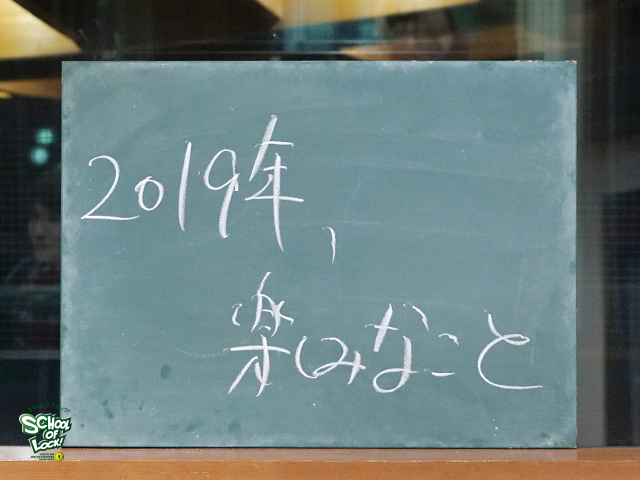 2019年,
楽しみなこと
SCHOOL
OF
LOCK!